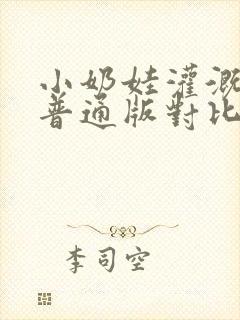 小奶娃灌溉
普通版對比
李司空